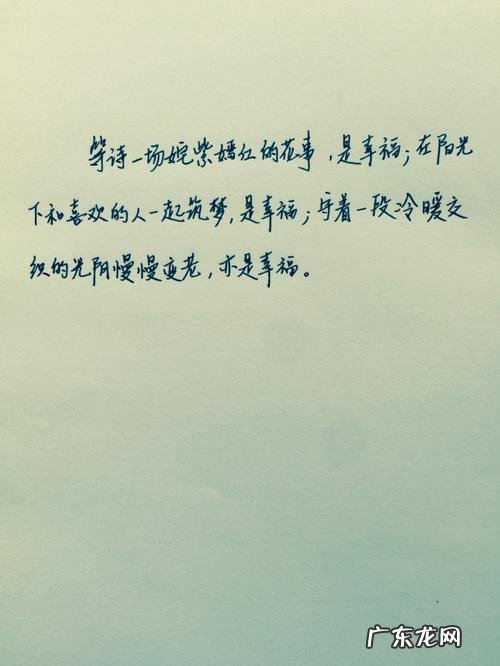 等诗一场姹紫嫣红的花事，是幸福；在阳光
下和喜欢的人一起筑梦，是幸福；守着一段冷暖交
织的光阴慢慢变老，亦是幸福。
广东龙网